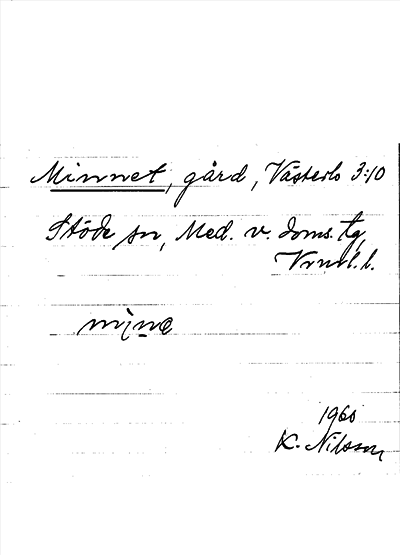 Minnet, gård, Västerlo 3:10
Stöde sn, Med. v. doms. tg,
Vrnrl. l.
mi̯nə
1960
K. Nilsson